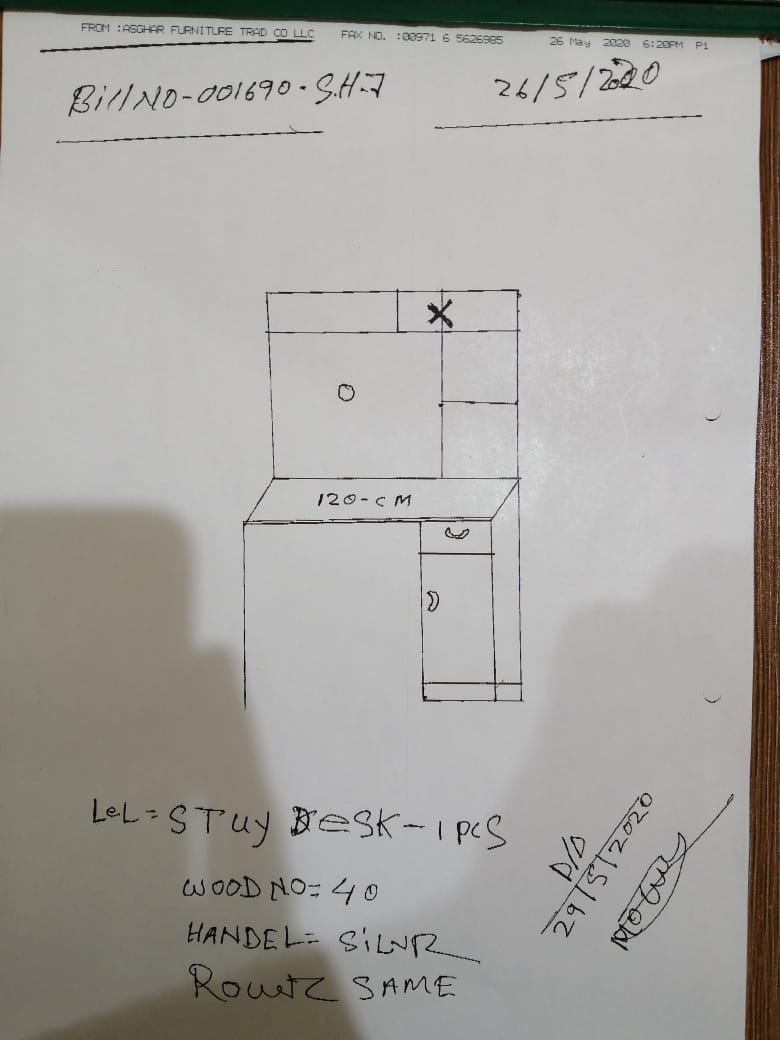 FROM :ASGHAR FURNITURE TRAD CO LLC FAX NO. :00971 6 5626985 26 May 2020 6:20PM P1
Bill NO-001690. S.H.J 26/5/2020
120-CM
LeL = STUY DESK - 1 PCS
WOOD NO= 40
HANDEL= SiLVR
SAME
D/D
29/5/2020